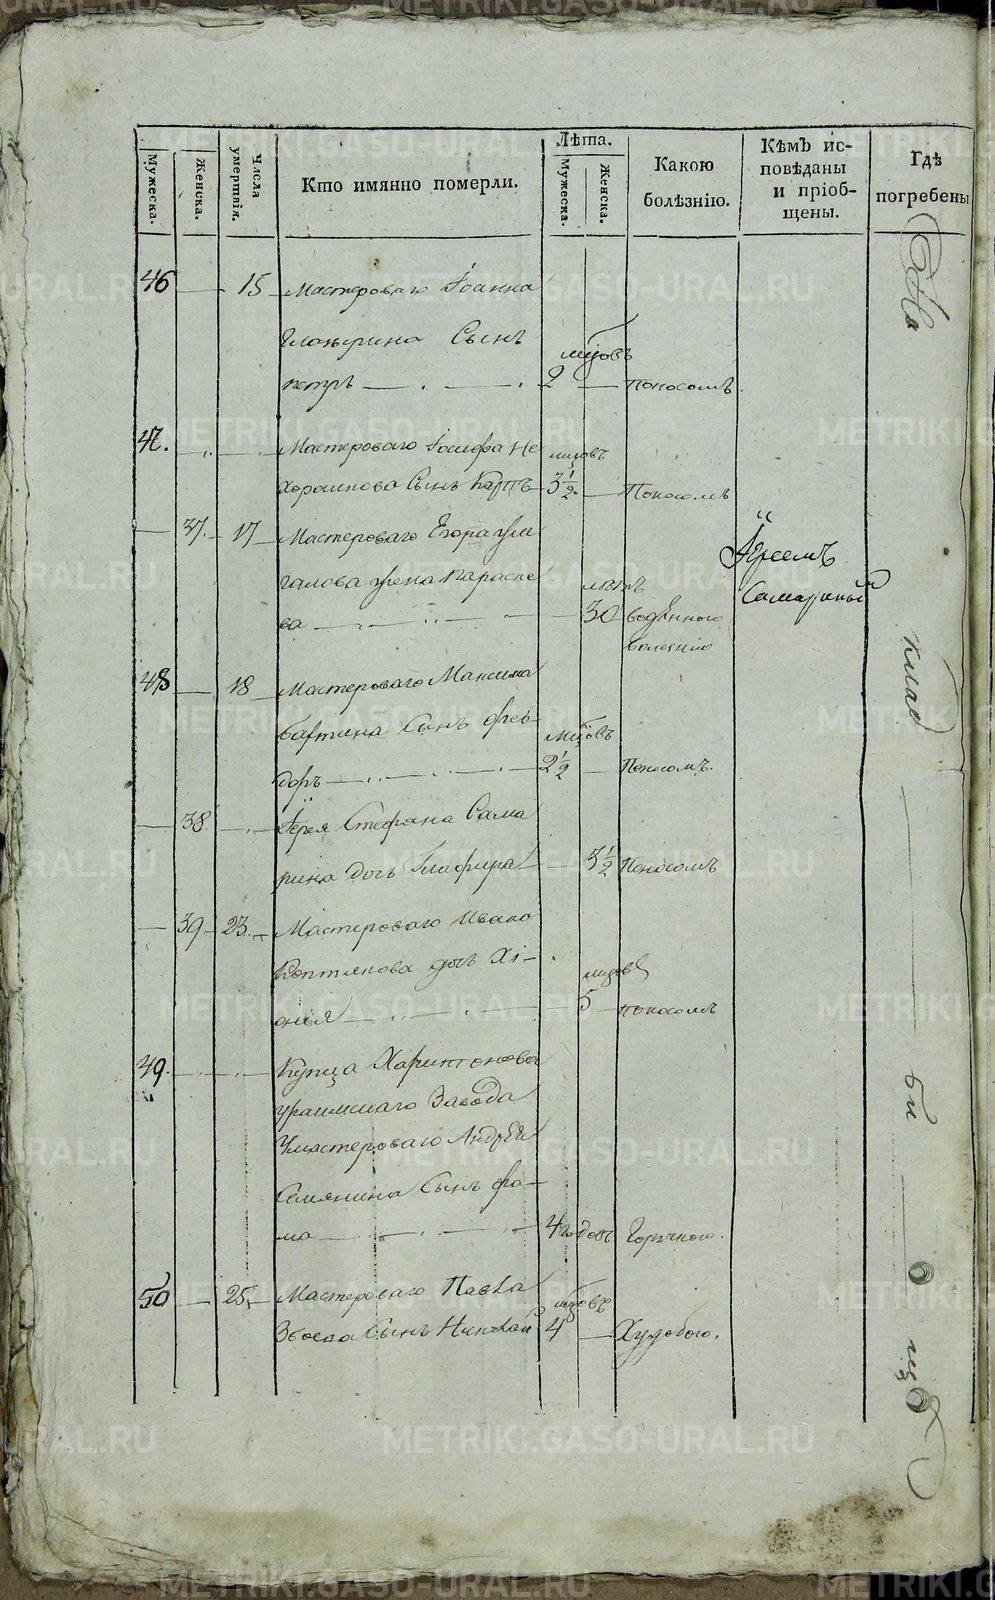 Мужеска.
Женска.
Числа умертвія.
Кто имянно померли.
Лѣта.
Мужеска.
Женска.
Какою болѣзнію.
Кѣмъ исповѣданы и пріобщены.
Гдѣ погребены
46 15 Мастероваго Іоанна
Сынъ мцовъ
петръ 2 поносомъ.
47. Мастероваго Іосифа Не мцовъ
хорошкова Сынъ Карпъ 3 1/2 Поносомъ
37. 17 Мастероваго Егора
галова жена Параске лѣтъ
ва 30 водяною
болезнію
Іереемъ
Самаринымъ
48 18 Мастероваго Максима
Сынъ Фео мцовъ
доръ 2 1/2 Поносомъ.
38. Іерея Стефана Сама
рина дочь Глафира 3 1/2 Поносомъ
39 23 Мастероваго Ивана
Коптякова дочь Хі- мцовъ
онія 5 поносомъ
49. Купца Харитонова
уфаимскаго Завода
Умастероваго Андрея
Семянина Сынъ Фо-
ма 4 годовъ Горячкою.
50 25 Мастероваго Павла мцовъ
Сынъ Николай 4 Худобою.
На
клад
би
щѣ
METRIKI.GASO-URAL.RU